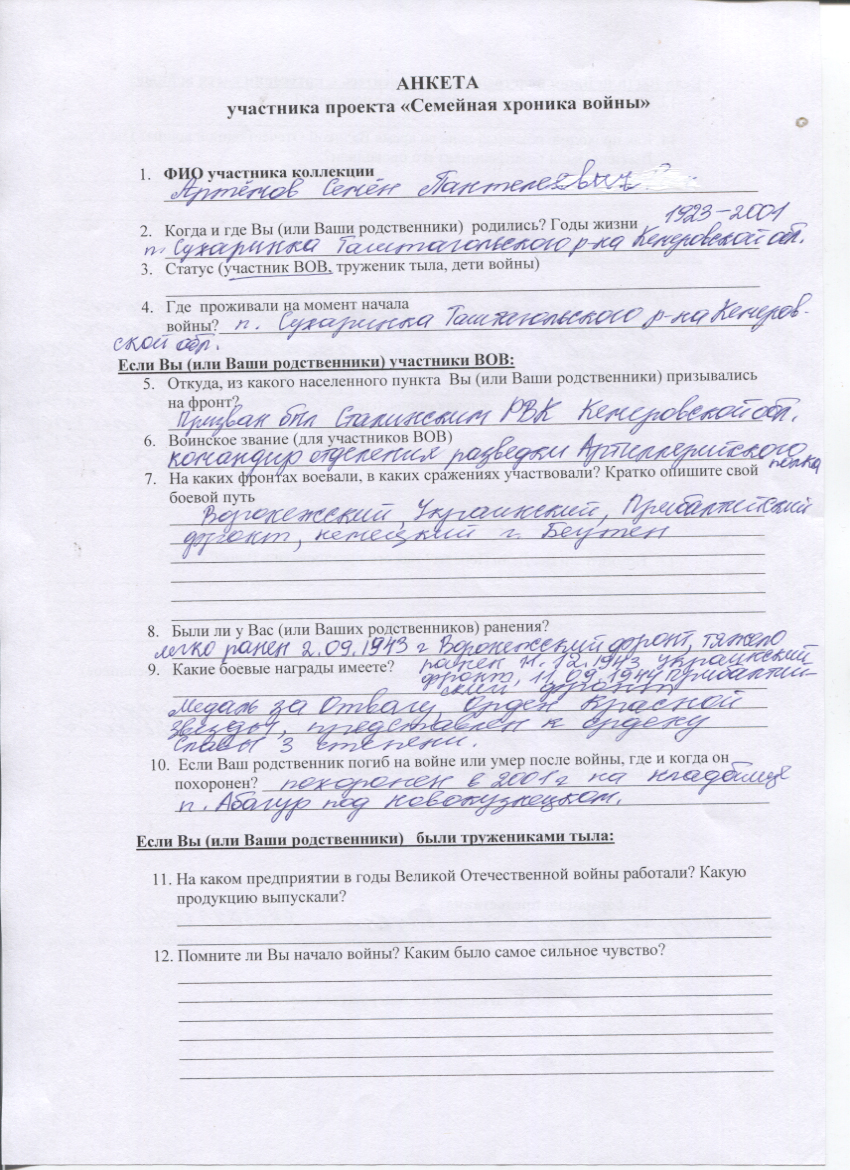 АНКЕТА
участника проекта «Семейная хроника войны»
1. ФИО участника коллекции
Артёмов Семён Пантелеевич
2. Когда и где Вы (или Ваши родственники) родились? Годы жизни 1923-2001
п. Сухаринка Таштагольского р-на Кемеровской обл.
3. Статус (участник ВОВ, труженик тыла, дети войны)
4. Где проживали на момент начала
войны? п. Сухаринка Таштагольского р-на Кемеров-
ской обл.
Если Вы (или Ваши родственники) участники ВОВ:
5. Откуда, из какого населенного пункта Вы (или Ваши родственники) призывались
на фронт?
Призван был Сталинским РВК Кемеровской обл.
6. Воинское звание (для участников ВОВ)
командир отделения разведки Артиллерийского
полка
7. На каких фронтах воевали, в каких сражениях участвовали? Кратко опишите свой
боевой путь
Воронежский, Украинский, Прибалтийский
фронт, немецкий г. Беутен
8. Были ли у Вас (или Ваших родственников) ранения?
легко ранен 2.09.1943 г Воронежский фронт, тяжело
9. Какие боевые награды имеете? ранен 11.12.1943 украинский
фронт, 11.09.1944 прибалтий-
ский фронт
Медаль за Отвагу, Орден Красной
звезды, представлен к ордену
Славы 3 степени.
10. Если Ваш родственник погиб на войне или умер после войны, где и когда он
похоронен? похоронен в 2001 г на кладбище
п. Абагур под Новокузнецком.
Если Вы (или Ваши родственники) были тружениками тыла:
11. На каком предприятии в годы Великой Отечественной войны работали? Какую
продукцию выпускали?
12. Помните ли Вы начало войны? Каким было самое сильное чувство?